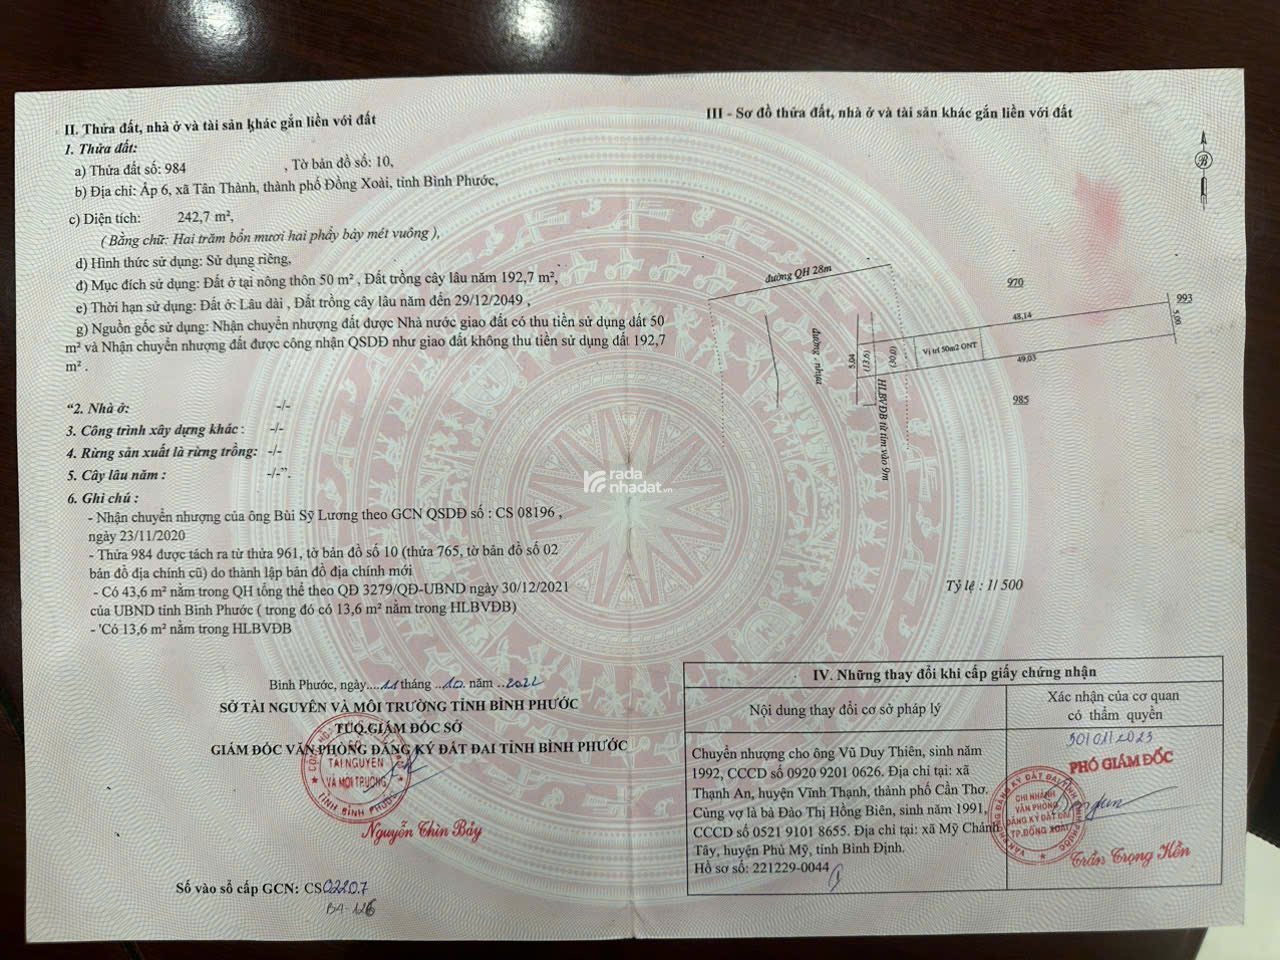 II. Thửa đất, nhà ở và tài sản khác gắn liền với đất
1. Thửa đất:
a) Thửa đất số: 984 , Tờ bản đồ số: 10,
b) Địa chỉ: Ấp 6, xã Tân Thành, thành phố Đồng Xoài, tỉnh Bình Phước,
c) Diện tích: 242,7 m²,
( Bằng chữ: Hai trăm bốn mươi hai phẩy bảy mét vuông ),
d) Hình thức sử dụng: Sử dụng riêng,
đ) Mục đích sử dụng: Đất ở tại nông thôn 50 m² , Đất trồng cây lâu năm 192,7 m²,
e) Thời hạn sử dụng: Đất ở: Lâu dài , Đất trồng cây lâu năm đến 29/12/2049 ,
g) Nguồn gốc sử dụng: Nhận chuyển nhượng đất được Nhà nước giao đất có thu tiền sử dụng đất 50
m² và Nhận chuyển nhượng đất được công nhận QSDĐ như giao đất không thu tiền sử dụng đất 192,7
m² .
“2. Nhà ở: -/-
3. Công trình xây dựng khác : -/-
4. Rừng sản xuất là rừng trồng: -/-
5. Cây lâu năm : -/-”.
6. Ghi chú :
- Nhận chuyển nhượng của ông Bùi Sỹ Lương theo GCN QSDĐ số : CS 08196 ,
ngày 23/11/2020
- Thửa 984 được tách ra từ thửa 961, tờ bản đồ số 10 (thửa 765, tờ bản đồ số 02
bản đồ địa chính cũ) do thành lập bản đồ địa chính mới
- Có 43,6 m² nằm trong QH tổng thể theo QĐ 3279/QĐ-UBND ngày 30/12/2021
của UBND tỉnh Bình Phước ( trong đó có 13,6 m² nằm trong HLBVĐB)
- 'Có 13,6 m² nằm trong HLBVĐB
Bình Phước, ngày....11 tháng ..10. năm ..2022
SỞ TÀI NGUYÊN VÀ MÔI TRƯỜNG TỈNH BÌNH PHƯỚC
TUQ.GIÁM ĐỐC SỞ
GIÁM ĐỐC VĂN PHÒNG ĐĂNG KÝ ĐẤT ĐAI TỈNH BÌNH PHƯỚC
SỞ
TÀI NGUYÊN
VÀ MÔI TRƯỜNG
TỈNH BÌNH PHƯỚC
Nguyễn Thìn Bảy
Số vào sổ cấp GCN: CS02207
BA-126
III - Sơ đồ thửa đất, nhà ở và tài sản khác gắn liền với đất
B
đường QH 28m
970
993
48,14
5,00
đường nhựa
5,04
(13,6)
(30,0)
Vị trí 50m2 ONT
49,03
985
HLBVĐB từ tim vào 9m
rada
nhadat.vn
Tỷ lệ : 1/ 500
IV. Những thay đổi khi cấp giấy chứng nhận
Nội dung thay đổi cơ sở pháp lý
Xác nhận của cơ quan
có thẩm quyền
Chuyển nhượng cho ông Vũ Duy Thiên, sinh năm
1992, CCCD số 0920 9201 0626. Địa chỉ tại: xã
Thạnh An, huyện Vĩnh Thạnh, thành phố Cần Thơ.
Cùng vợ là bà Đào Thị Hồng Biên, sinh năm 1991,
CCCD số 0521 9101 8655. Địa chỉ tại: xã Mỹ Chánh
Tây, huyện Phù Mỹ, tỉnh Bình Định.
Hồ sơ số: 221229-0044
30/01/2023
PHÓ GIÁM ĐỐC
CHI NHÁNH
VĂN PHÒNG
ĐĂNG KÝ ĐẤT ĐAI
TP.ĐỒNG XOÀI
Trần Trọng Kền